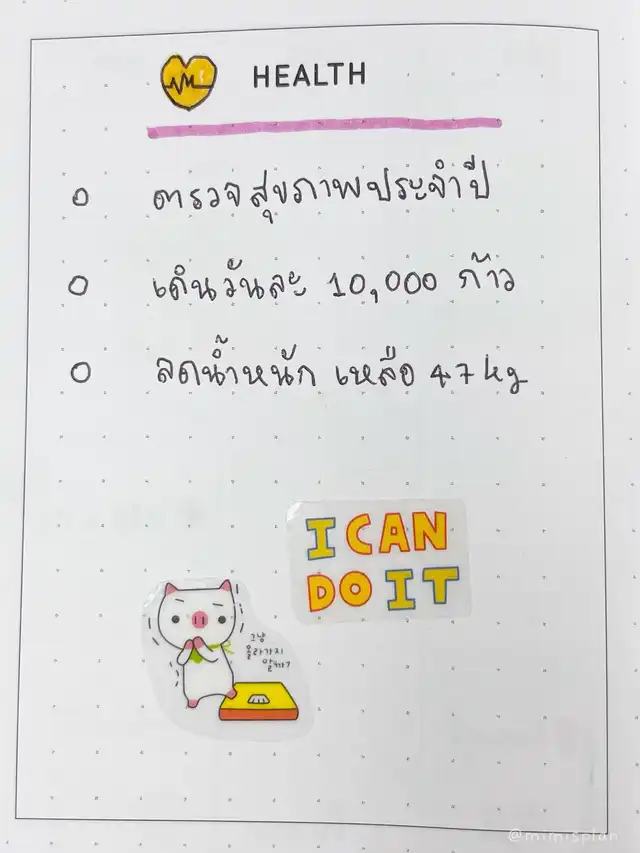 HEALTH
o ตรวจสุขภาพประจำปี
o เดินวันละ 10,000 ก้าว
o ลดน้ำหนัก เหลือ 47 kg
I CAN
DO IT
그냥
올라가지
말까?
@mimisplan